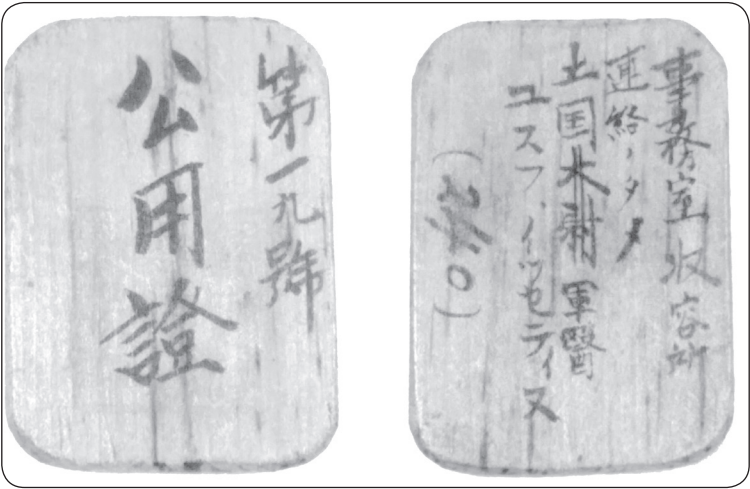 第一九號
公用證
事務室収容所
連絡ノタメ
土国大尉軍醫
ユスフ、イッセディヌ